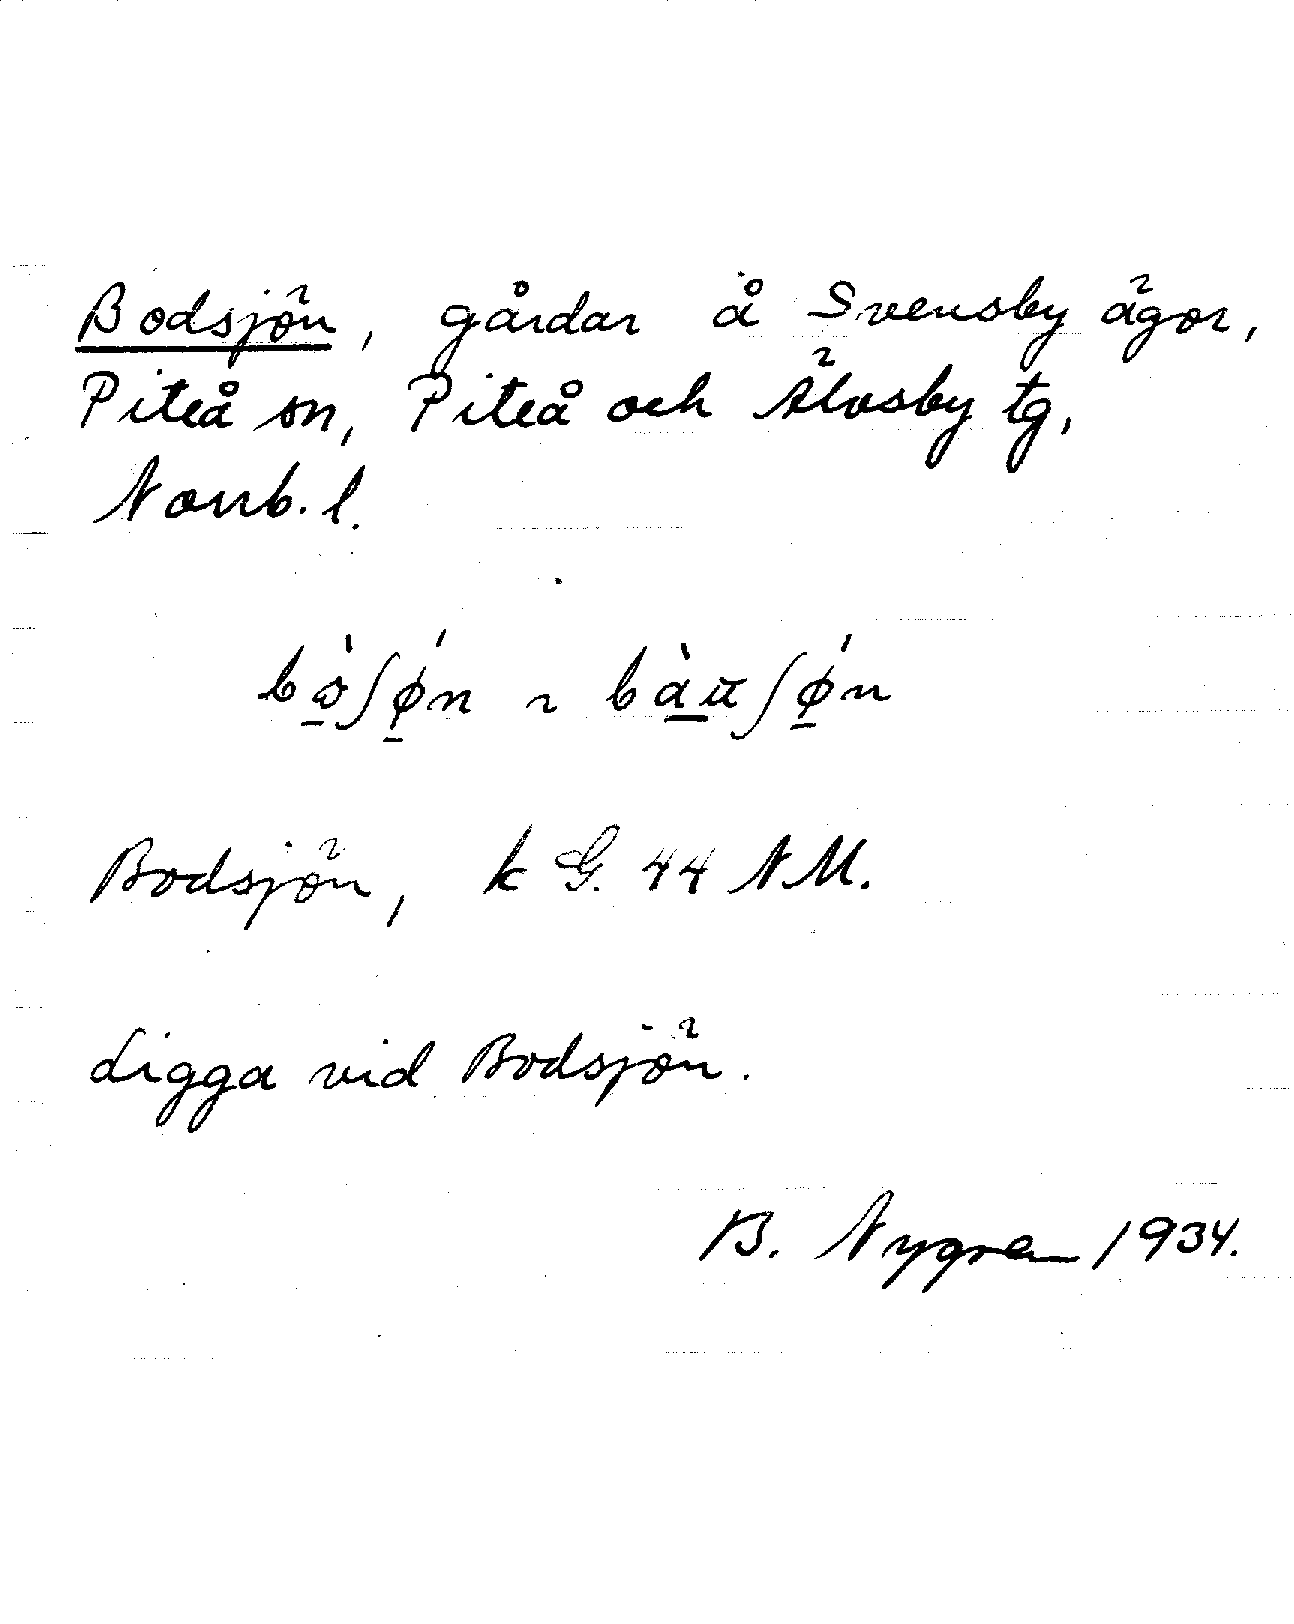 Bodsjön, gårdar å Svensby ägor,
Piteå sn, Piteå och Älvsby tg,
Norrb. l.
bɷ̠̀ʃǿ̠n ~ bà̠u̠ʃǿ̠n
Bodsjön, k G. 44 NM.
Ligga vid Bodsjön.
B. Nygren 1934.